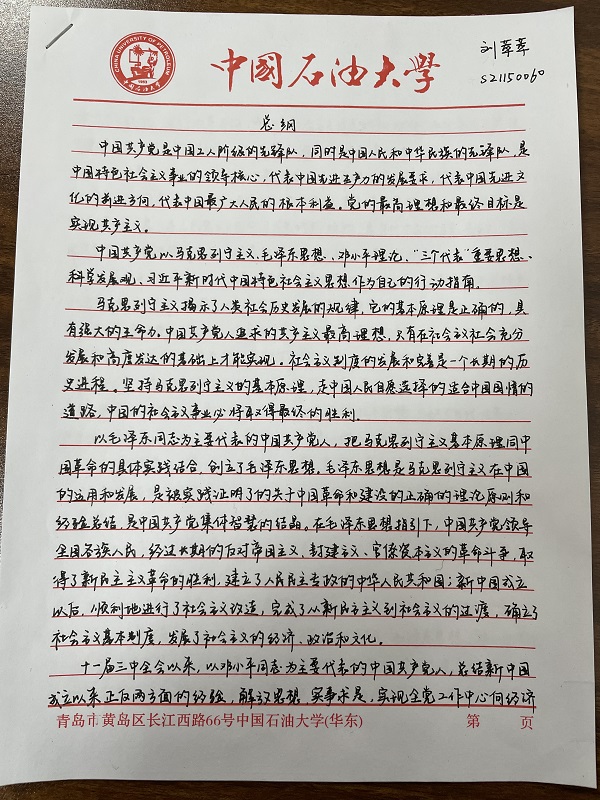 CHINA UNIVERSITY OF PETROLEUM
1953
中國石油大學
刘苹苹
S21150060
总纲
中国共产党是中国工人阶级的先锋队，同时是中国人民和中华民族的先锋队，是
中国特色社会主义事业的领导核心，代表中国先进生产力的发展要求，代表中国先进文
化的前进方向，代表中国最广大人民的根本利益。党的最高理想和最终目标是
实现共产主义。
中国共产党以马克思列宁主义、毛泽东思想、邓小平理论、“三个代表”重要思想、
科学发展观、习近平新时代中国特色社会主义思想作为自己的行动指南。
马克思列宁主义揭示了人类社会历史发展的规律，它的基本原理是正确的，具
有强大的生命力。中国共产党人追求的共产主义最高理想，只有在社会主义社会充分
发展和高度发达的基础上才能实现。社会主义制度的发展和完善是一个长期的历
史进程。坚持马克思列宁主义的基本原理，走中国人民自愿选择的适合中国国情的
道路，中国的社会主义事业必将取得最终的胜利。
以毛泽东同志为主要代表的中国共产党人，把马克思列宁主义基本原理同中
国革命的具体实践结合，创立了毛泽东思想。毛泽东思想是马克思列宁主义在中国
的运用和发展，是被实践证明了的关于中国革命和建设的正确的理论原则和
经验总结，是中国共产党集体智慧的结晶。在毛泽东思想指引下，中国共产党领导
全国各族人民，经过长期的反对帝国主义、封建主义、官僚资本主义的革命斗争，取
得了新民主主义革命的胜利，建立了人民民主专政的中华人民共和国；新中国成立
以后，顺利地进行了社会主义改造，完成了从新民主主义到社会主义的过渡，确立了
社会主义基本制度，发展了社会主义的经济、政治和文化。
十一届三中全会以来，以邓小平同志为主要代表的中国共产党人，总结新中国
成立以来正反两方面的经验，解放思想，实事求是，实现全党工作中心向经济
青岛市黄岛区长江西路66号中国石油大学(华东)
第 页